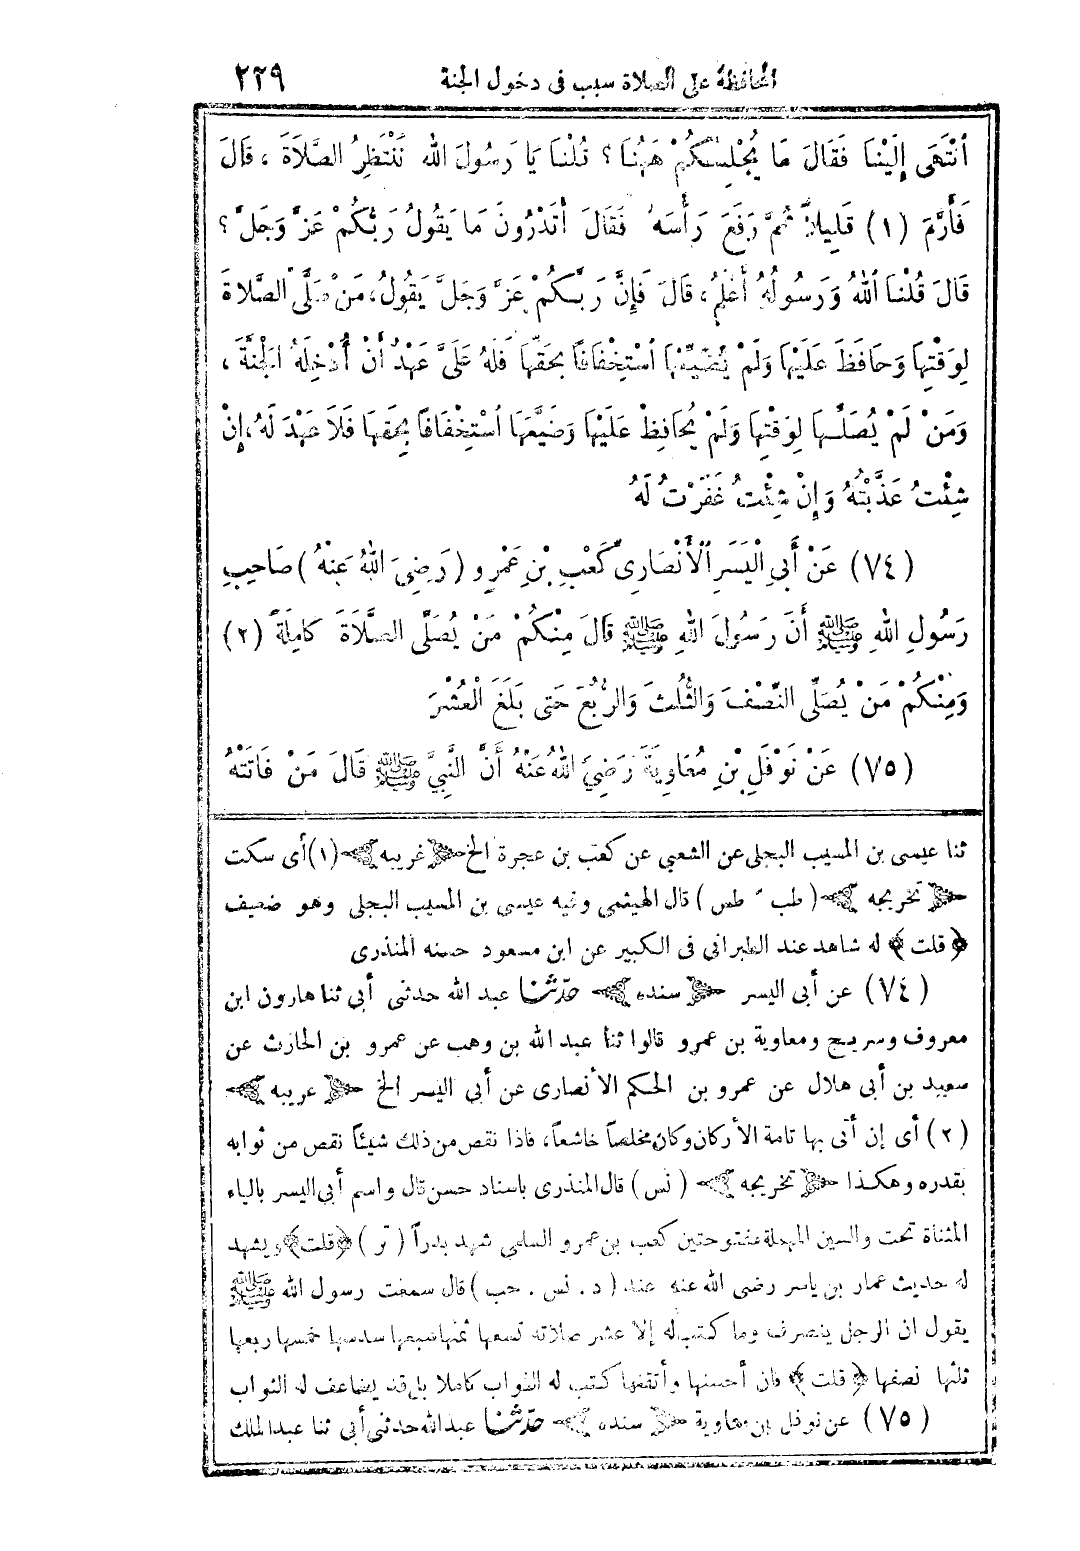 المحافظة على الصلاة سبب فى دخول الجنة ٢٢٩
أنْتَهَى إِلَيْنَا فَقَالَ مَا يُجْلِسُكُمْ هَهُنَا ؟ قُلْنَا يَا رَسُولَ اللهِ نَنْتَظِرُ الصَّلَاةَ ، قَالَ
فَأَرَمَّ (١) قَلِيلاً ثُمَّ رَفَعَ رَأْسَهُ فَقَالَ أَتَدْرُونَ مَا يَقُولُ رَبُّكُمْ عَزَّ وَجَلَّ ؟
قَالَ قُلْنَا اللهُ وَرَسُولُهُ أَعْلَمُ، قَالَ فَإِنَّ رَبَّكُمْ عَزَّ وَجَلَّ يَقُولُ، مَنْ صَلَّى الصَّلَاةَ
لِوَقْتِهَا وَحَافَظَ عَلَيْهَا وَلَمْ يُضَيِّعْهَا اسْتِخْفَافًا بِحَقِّهَا فَلَهُ عَلَىَّ عَهْدٌ أَنْ أُدْخِلَهُ الْجَنَّةَ ،
وَمَنْ لَمْ يُصَلِّهَا لِوَقْتِهَا وَلَمْ يُحَافِظْ عَلَيْهَا وَضَيَّعَهَا اسْتِخْفَافًا بِحَقِّهَا فَلَا عَهْدَ لَهُ، إِنْ
شِئْتُ عَذَّبْتُهُ وَإِنْ شِئْتُ غَفَرْتُ لَهُ
(٧٤) عَنْ أَبِى الْيَسَرِ الْأَنْصَارِىِّ كَعْبِ بْنِ عَمْرٍو (رَضِىَ اللهُ عَنْهُ) صَاحِبِ
رَسُولِ اللهِ ﷺ أَنَّ رَسُولَ اللهِ ﷺ قَالَ مِنْكُمْ مَنْ يُصَلِّى الصَّلَاةَ كَامِلَةً (٢)
وَمِنْكُمْ مَنْ يُصَلِّى النِّصْفَ وَالثُّلُثَ وَالرُّبُعَ حَتَّى بَلَغَ الْعُشْرَ
(٧٥) عَنْ نَوْفَلِ بْنِ مُعَاوِيَةَ رَضِىَ اللهُ عَنْهُ أَنَّ النَّبِىَّ ﷺ قَالَ مَنْ فَاتَتْهُ
ثنا عيسى بن المسيب البجلى عن الشعبي عن كعب بن عجرة الخ ﴿غريبه﴾ (١) أى سكت
﴿تخريجه﴾ (طب ٠ طس) قال الهيثمى وفيه عيسى بن المسيب البجلى وهو ضعيف
﴿قلت﴾ له شاهد عند الطبرانى فى الكبير عن ابن مسعود حسنه المنذرى
(٧٤) عن أبى اليسر ﴿سنده﴾ حدّثنا عبد الله حدثنى أبي ثنا هارون ابن
معروف وسريج ومعاوية بن عمرو قالوا ثنا عبد الله بن وهب عن عمرو بن الحارث عن
سعيد بن أبى هلال عن عمرو بن الحكم الأنصارى عن أبى اليسر الخ ﴿غريبه﴾
(٢) أى إن أتى بها تامة الأركان وكان مخلصاً خاشعاً، فاذا نقص من ذلك شيئاً نقص من ثوابه
بقدره وهكذا ﴿تخريجه﴾ (نس) قال المنذرى باسناد حسن قال واسم أبى اليسر بالياء
المثناة تحت والسين المهملة مفتوحتين كعب بن عمرو السلمى شهد بدراً (تر) ﴿قلت﴾ ويشهد
له حديث عمار بن ياسر رضى الله عنه عند (د . نس . حب) قال سمعت رسول الله ﷺ
يقول ان الرجل ينصرف وما كتب له إلا عشر صلاته تسعها ثمنها سبعها سدسها خمسها ربعها
ثلثها نصفها ﴿قلت﴾ فان أحسنها وأتقنها كتب له الثواب كاملا بل قد يضاعف له الثواب
(٧٥) عن نوفل بن معاوية ﴿سنده﴾ حدّثنا عبد الله حدثنى أبي ثنا عبد الملك